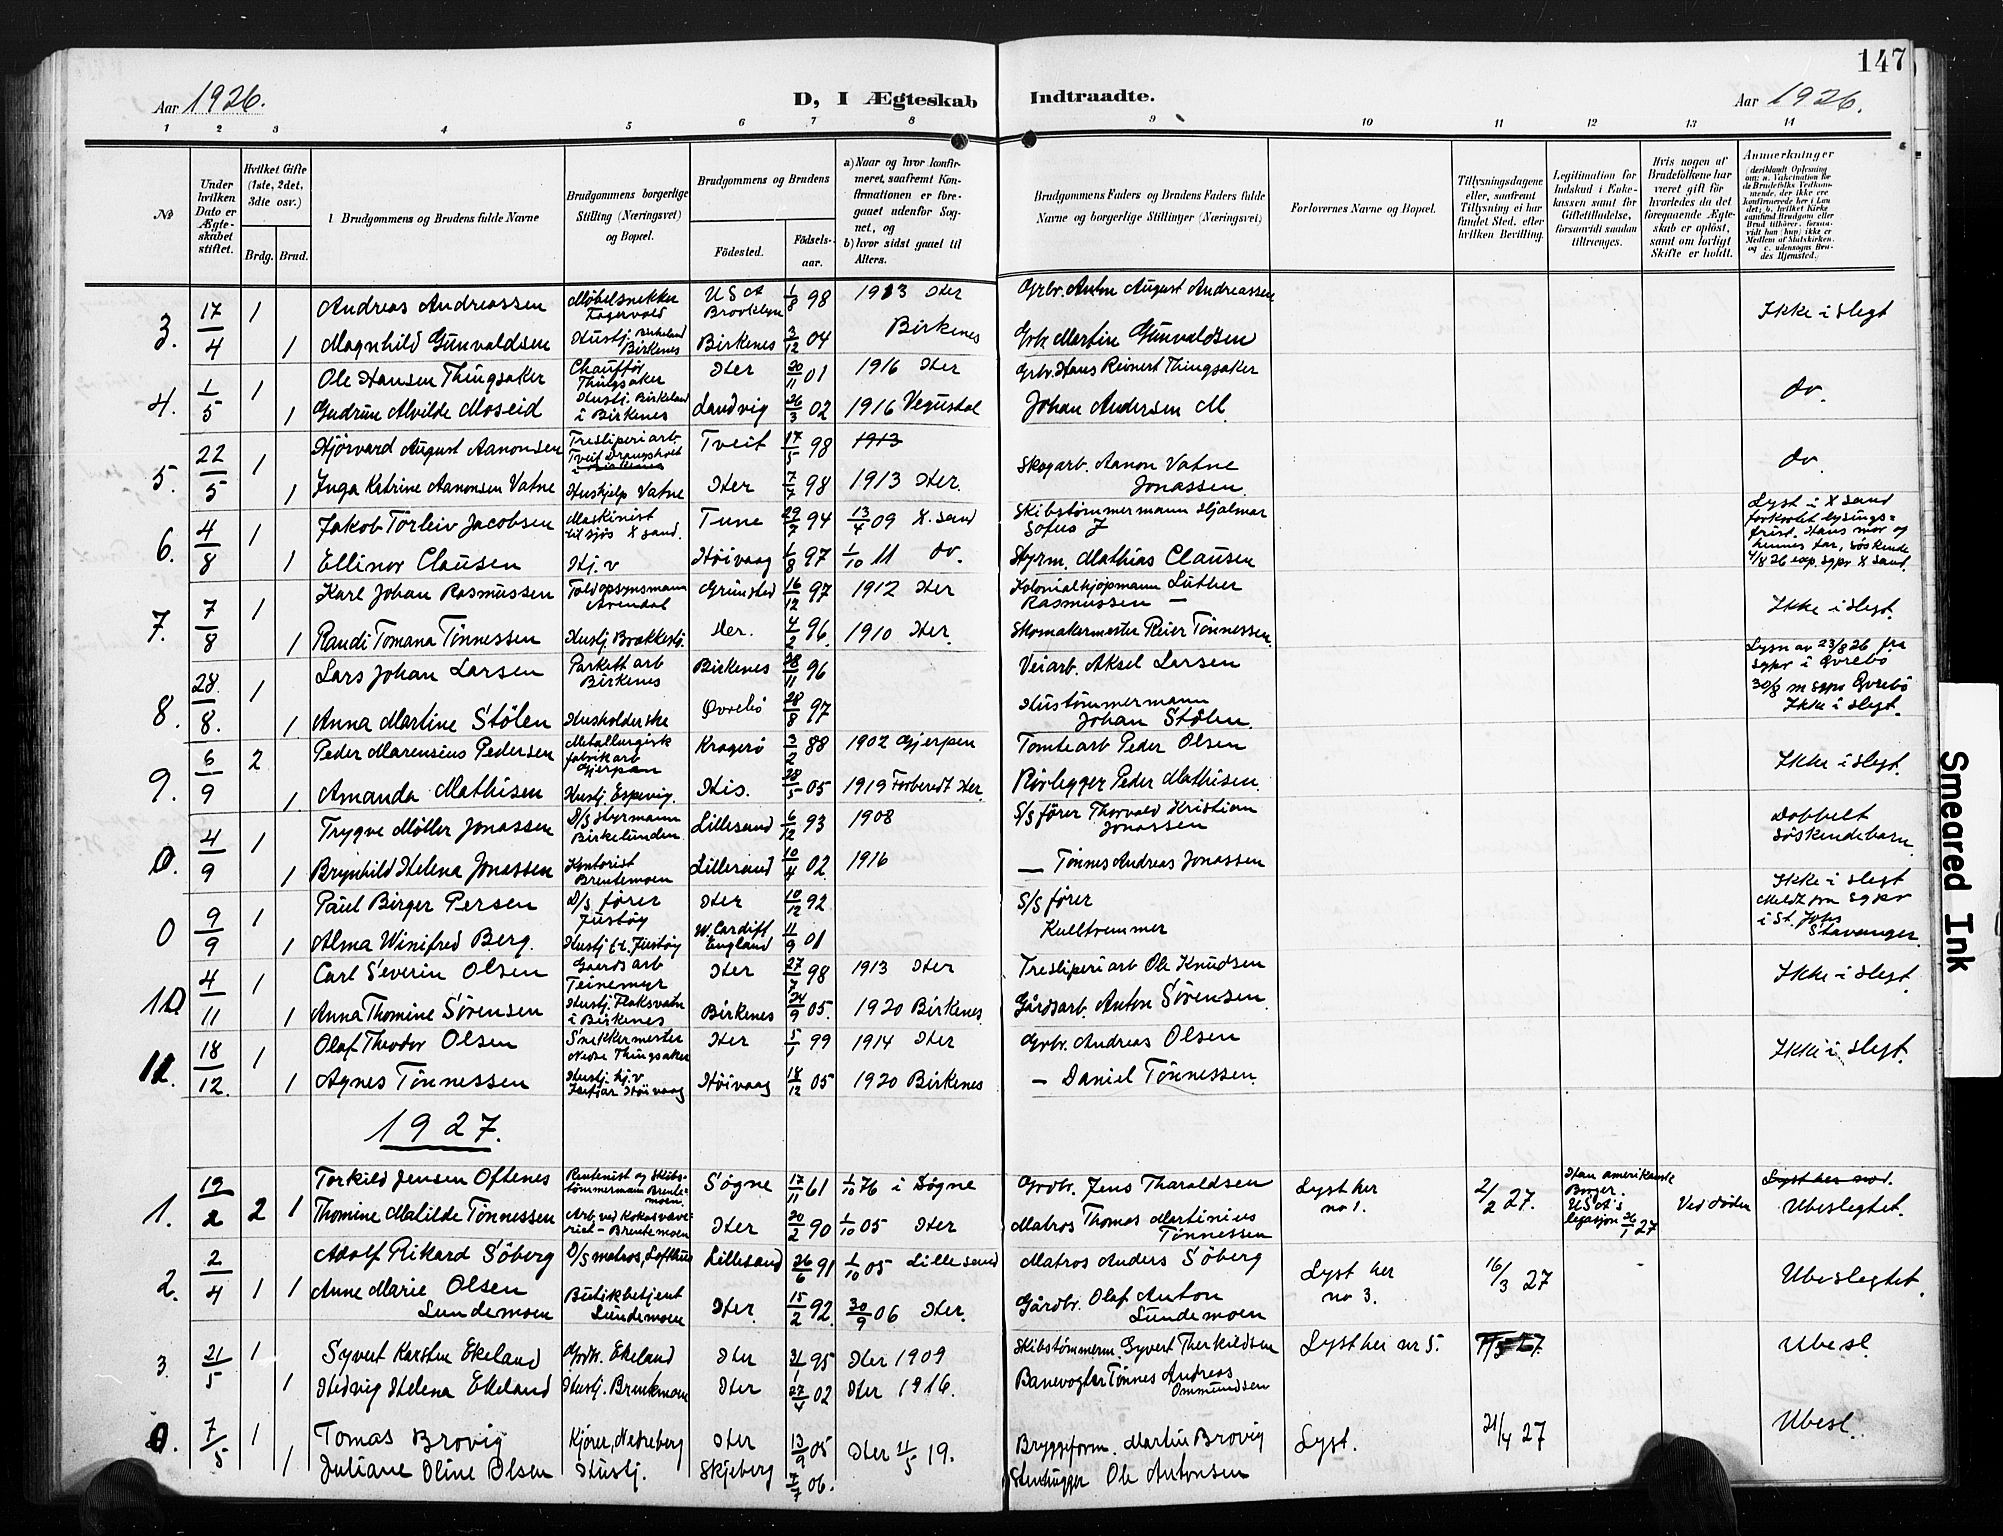 147
Aar 1926.
D, I Ægteskab Indtraadte.
Aar 1926.
1 2 3 4 5 6 7 8 9 10 11 12 13 14
No
Under hvilken Dato er Ægte-skabet stiftet.
Hvilket Gifte (1ste, 2det, 3die osv.)
Brdg. Brud.
Brudgommens og Brudens fulde Navne
Brudgommens borgerlige Stilling (Næringsvei) og Bopæl.
Brudgommens og Brudens
Födested.
Födsels-aar.
a) Naar og hvor konfir-meret, saafremt Kon-firmationen er fore-gaaet udenfor Sog-net, og
b) hvor sidst gaaet til Alters.
Brudgommens Faders og Brudens Faders fulde Navne og borgerlige Stillinger (Næringsvei)
Forlovernes Navne og Bopæl.
Tillysningsdagene eller, saafremt Tillysning ei har fundet Sted, efter hvilken Bevilling.
Legitimation for Indskud i Enke-kassen samt for Giftetilladelse, forsaavidt saadan tiltrænges.
Hvis nogen af Brudefolkene har været gift för hvorledes da det foregaaende Ægte-skab er oplöst, samt om lovligt Skifte er holdt.
Anmerkninger
3. 17/4 1 Andreas Andreassen Möbelsnekker Fagervold USA Brooklyn 1/8 98 1913 Her Grbr. August Andreassen Ikke i slegt
1 Magnhild Gunvaldsen Hustj. Birkeland Birkenes Birkenes 3/12 04 Birkenes Grbr Martin Gunvaldsen
4. 1/5 1 Ole Hansen Thingsaker Chaufför Thingsaker Her 20/11 01 1916 Her Grbr. Hans Reinert Thingsaker do.
1 Gudrun Alvilde Moseid Hustj. Birkeland i Birkenes Landvig 26/3 02 1916 Vegusdal Johan Andersen M
5. 22/5 1 Hjörvard August Aanonsen Tresliperiarb. Tveit Drangsholt Tveit 17/5 98 1913 do.
1 Inga Katrine Aanonsen Vatne Hushjelp Vatne Her 7/7 98 1913 Her. Skogarb. Aanon Vatne Jonassen.
6. 4/8 1 Jakob Torleiv Jacobsen Maskinist til sjös X sand. Tune 29/7 94 13/4 09 X.sand Skibstömmermann Hjalmar Sofus J
Lyst i X sand forkortet lysings=frist. Hans mor og hennes far, söskende 4/8 26 exp. sgpr X sand.
1 Ellinor Clausen Hj.v Höivaag 1/8 97 1/10 11 do. Styrm. Mathias Clausen
7. 7/8 1 Karl Johan Rasmussen Toldopsynsmann Arendal Grimstad 16/12 97 1912 Her Kolonialkjöpmann Luther Rasmussen — Ikke i slegt.
1 Randi Tomana Tönnessen Hustj. Brækkestö. Her. 4/2 96. 1910 Her. Skomakermester Reier Tönnessen
8. 28/8. 1 Lars Johan Larsen Parkett arb Birkenes Birkenes 28/11 96 Veiarb. Aksel Larsen
Lysn av 23/8 26 fra sgpr i Øvrebö 30/8 m sgpr Øvrebö Ikke i slegt.
1 Anna Martine Stölen Husholderske Øvrebö 28/8 97 Hustömmermann Johan Stölen.
9. 6/9 2 Peder Marensius Pedersen Metallurgisk fabrikarb Gjerpen Kragerö 3/2 88 1902 Gjerpen Tomtearb Peder Olsen Ikke i slegt.
1 Amanda Mathisen Hustj Espevig. His. 28/5 05 1919 Forberedt Her. Rörlegger Peder Mathisen.
0. 4/9 1 Trygve Möller Jonassen D/s Styrmann Birkelunden Lillesand 6/12 93 1908 S/s förer Thorvald Kristian Jonassen Dobbelt söskendebarn.
1 Brynhild Helena Jonassen Kontorist Brentemoen Lillesand 10/4 02 1916 — Tönnes Andreas Jonassen
0 9/9 1 Paul Birger Persen D/s förer Justöy Her 10/12 92 S/s förer
Ikke i slegt Meldt fra sgpr i St. Johs Stavanger.
1 Alma Winifred Berg. Hustj. Justöy W. Cardiff England 11/9 01 Kulltrimmer
10 4/11 1 Carl Severin Olsen Gaardsarb Teinemyr Her 27/7 98 1913 Her Tresliperiarb Ole Knudsen Ikke i slegt.
1 Anna Thomine Sörensen Hustj. Flaksvatn i Birkenes Birkenes 24/9 05. 1920 Birkenes. Gårdsarb. Anton Sörensen
11. 18/12. 1 Olaf Theodor Olsen Snekkermester Nedre Thingsaker Her 5/1 99 1914 Her Grbr. Andreas Olsen Ikke i slegt.
1 Agnes Tönnessen Hustj. hj.v Höivaag Höivaag 18/12 05 1920 Birkenes — Daniel Tönnessen.
1927.
1. 19/2 2 1 Torkild Jensen Oftenes Rentenist og Skibs-tömmermann Brente-moen. Sögne 17/11 61 1/10 76 i Sögne Grdbr. Jens Tharaldsen Lyst her no 1. 2/2 27. Han amerikansk Borger. USA's legasjon 26/1 27 Ved döden Lyst her no 1. Ubeslegtet.
Thomine Matilde Tönnessen Arb. ved Kokosvæve-riet - Brentemoen Her 20/2 90 1/10 05 Her Matros Thomas Martinius Tönnessen
2. 2/4 1 1 Adolf Rikard Söberg D/s matros, Lofthus Lillesand 26/6 91 1/10 05 Lillesand Matros Anders Söberg Lyst her no 3. 16/3 27 Ubeslegtet.
Anne Marie Olsen Lundemoen Butikbetjent Lundemoen Her 15/2 92. 30/9 06 Her. Gårdbr. Olaf Anton Lundemoen
3 21/5 1 Syvert Karsten Ekeland Grdbr. Ekeland Her 31/1 95 Her 1909 Skibstömmerm Syvert Therkildsen Lyst her nr 5. Ubesl.
1 Hedvig Helena Ekeland Hustj. Brækmoen Her 27/4 02 Her 1916. Banevogter Tönnes Andreas Ommundsen
0. 7/5 1 Tomas Brovig Kjörer, Nedreberg Her 13/9 05 Her 11/5 19. Bryggeform. Martin Brovig Lyst. 21/4 27 Ubesl.
1 Juliane Oline Olsen Hustj. Skjeberg 7/7 06. Stenhugger Ole Antonsen
Smeared Ink